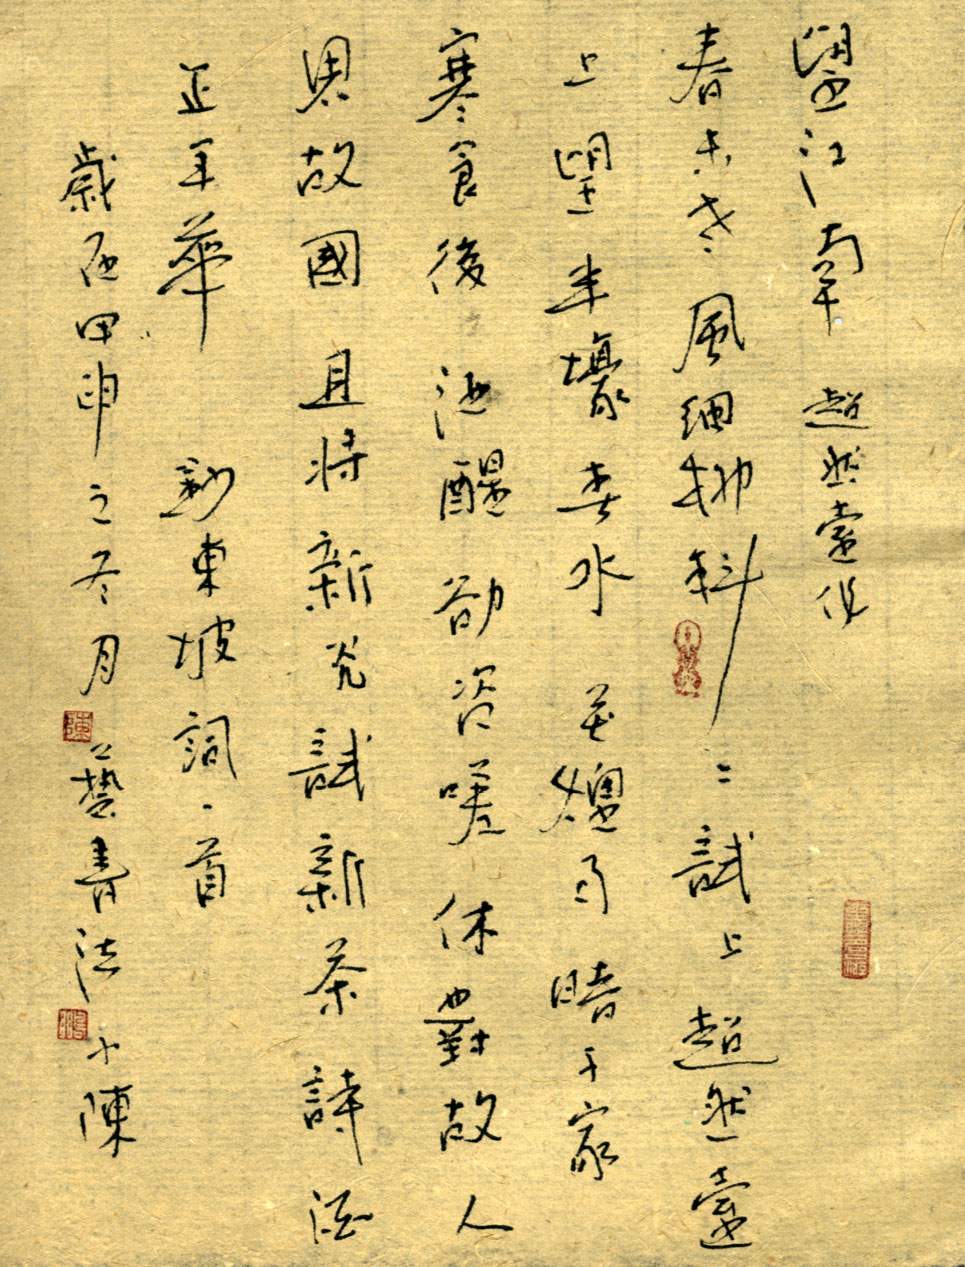 望江南 超然臺作
春未老 風細柳斜〻 試上超然臺
上望 半壕春水 花煙雨暗千家
寒食後 酒醒卻咨嗟 休對故人
思故國 且將新火試新茶 詩酒
正年華 鈔東坡詞一首
歲在甲申之冬月 藝書法 小陳
陳